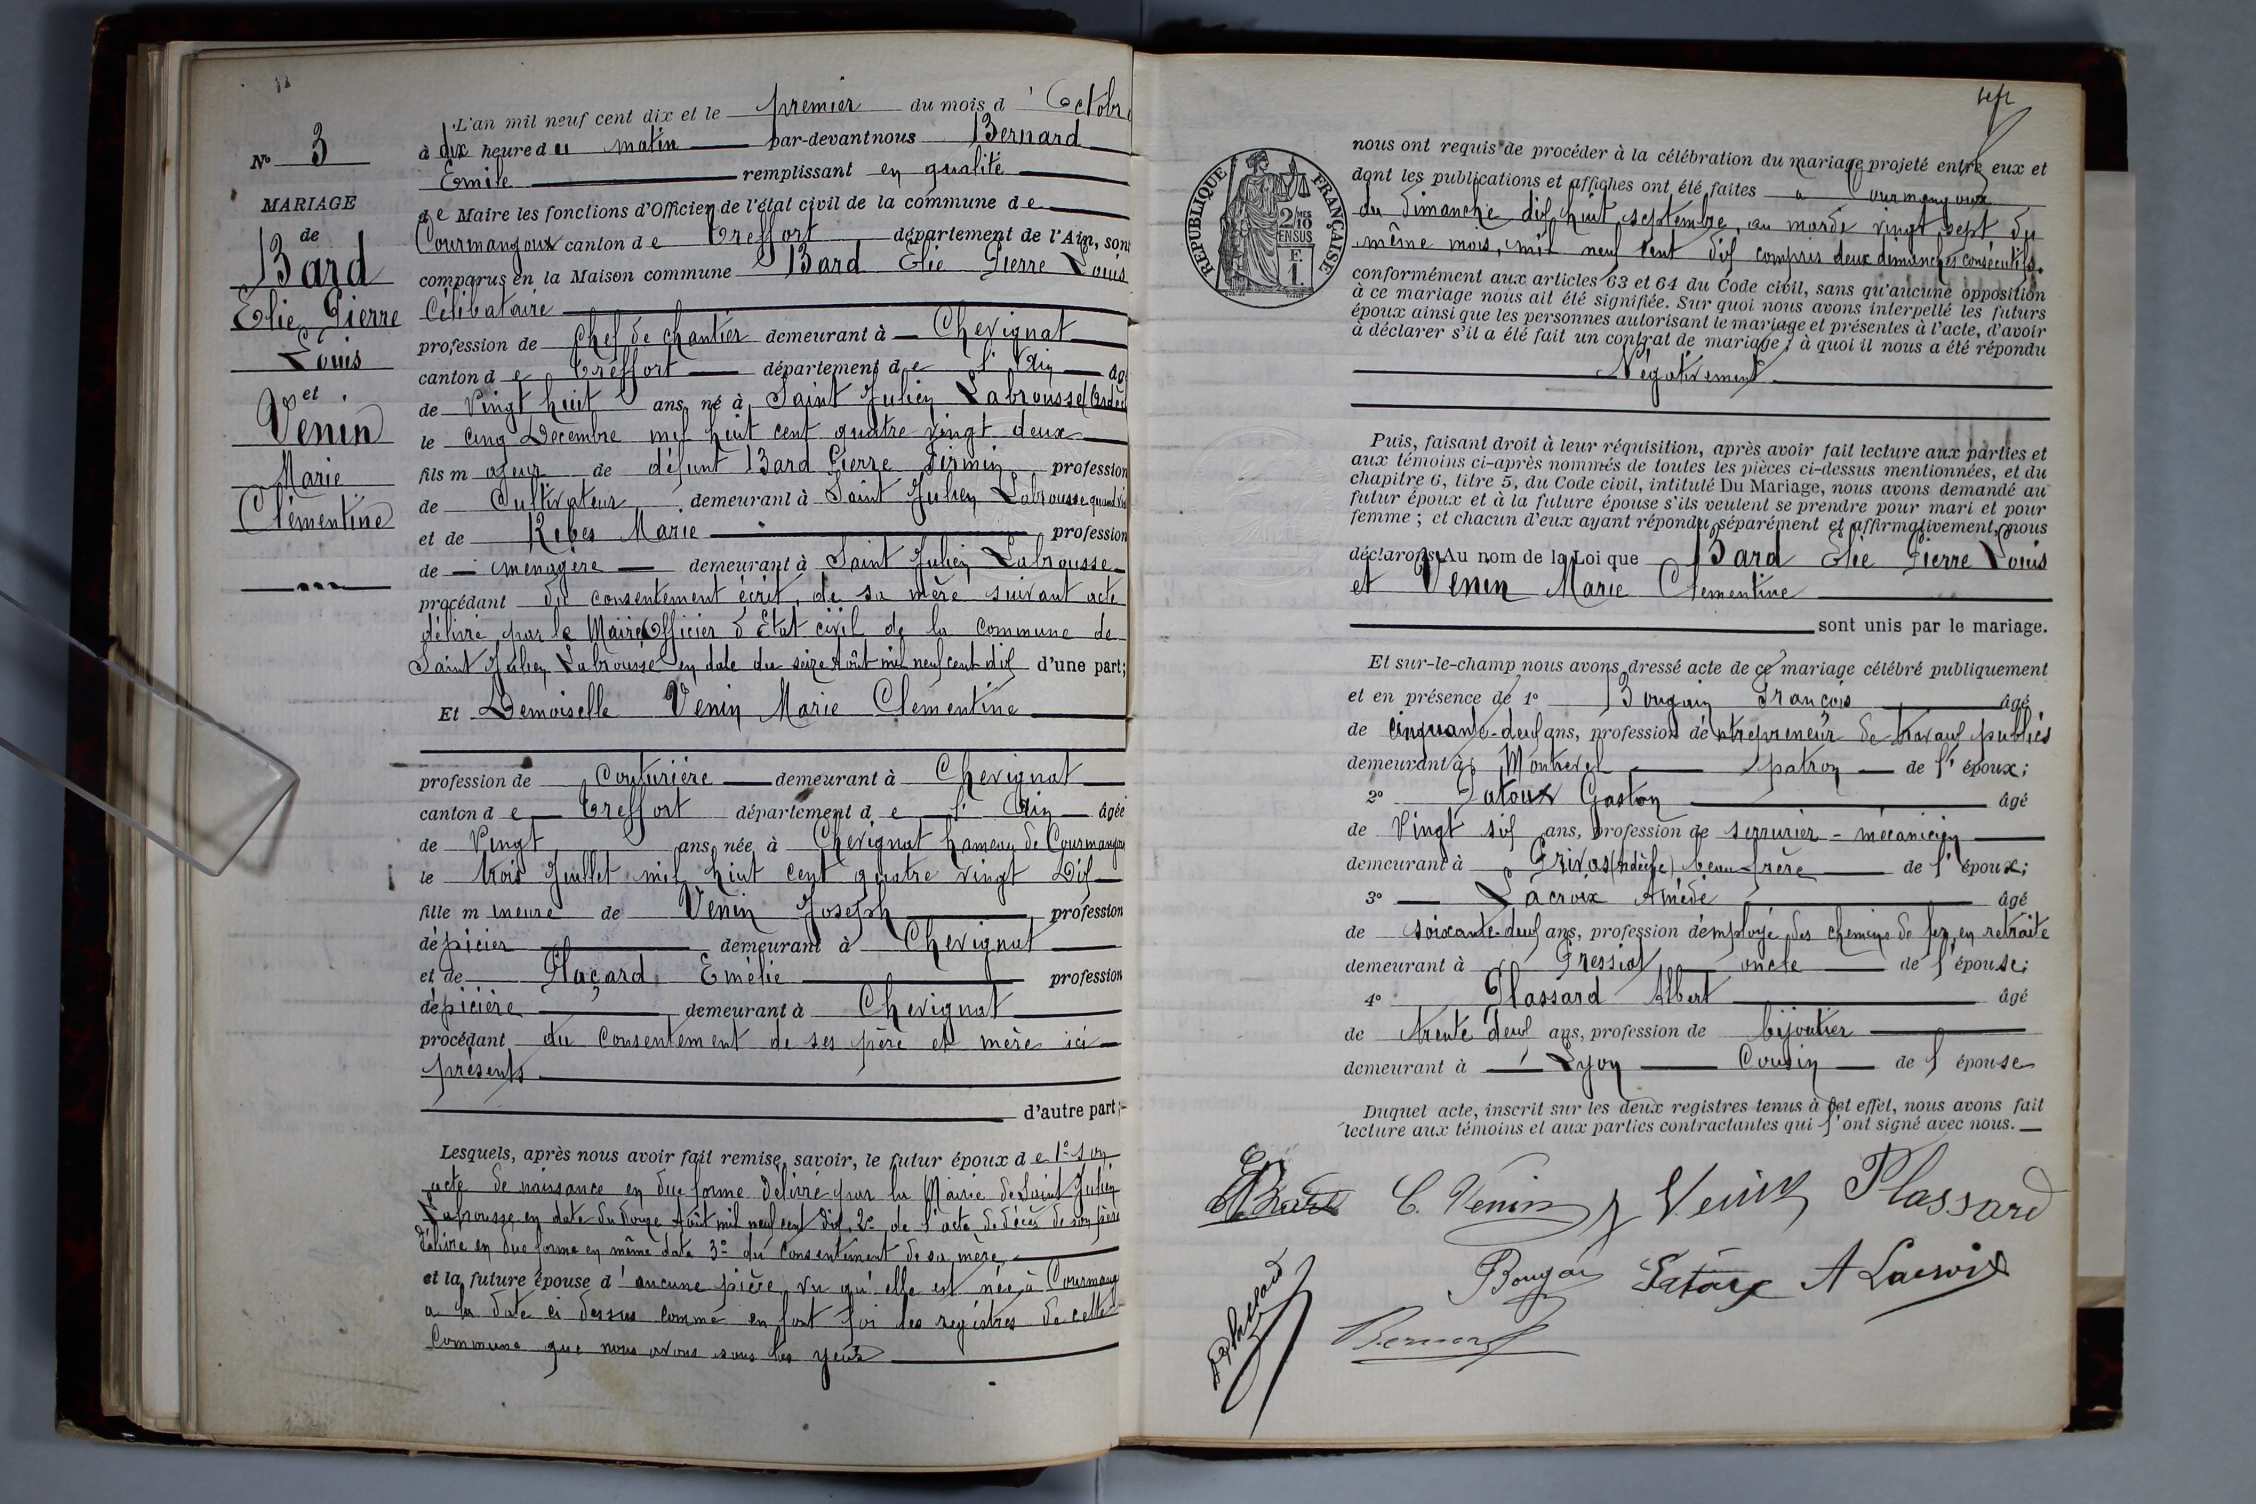 N° 3
MARIAGE
de
Bard
Elie Pierre
Louis
et
Venin
Marie
Clémentine
L'an mil neuf cent dix et le premier du mois d'Octobre
à dix heures du matin par-devant nous Bernard
Emile remplissant en qualité
de Maire les fonctions d'Officier de l'état civil de la commune de
Courmangoux canton de Treffort département de l'Ain, sont
comparus en la Maison commune Bard Elie Pierre Louis
Célibataire
profession de Chef de chantier demeurant à Chevignat
canton de Treffort département de l'Ain âgé
de Vingt huit ans, né à Saint Julien Labrousse (Ardèche
le cinq Décembre mil huit cent quatre vingt deux
fils majeur de défunt Bard Pierre Firmin profession
de Cultivateur demeurant à Saint Julien Labrousse quand
et de Ribes Marie profession
de ménagère demeurant à Saint Julien Labrousse
procédant du consentement écrit de sa mère suivant acte
délivré par le Maire Officier d'Etat civil de la commune de
Saint Julien Labrousse en date du seize Août mil neuf cent dix d'une part;
Et Demoiselle Venin Marie Clementine
profession de Couturière demeurant à Chevignat
canton de Treffort département de l'Ain âgée
de Vingt ans, née à Chevignat hameau de Courmangoux
le trois Juillet mil huit cent quatre vingt Dix
fille mineure de Venin Joseph profession
d'épicier demeurant à Chevignat
et de Plaçard Emélie profession
d'épicière demeurant à Chevignat
procédant du consentement de ses père et mère ici
présents
d'autre part;
Lesquels, après nous avoir fait remise, savoir, le futur époux de 1° son
acte de naissance en due forme délivré par la Mairie de Saint Julien
Labrousse en date du douze Août mil neuf cent dix, 2° de l'acte de décès de son père
délivré en due forme en même date 3° du consentement de sa mère,
et la future épouse d'aucune pièce, vu qu'elle est née à Courmang
a la date ci dessus comme en font foi les registres de cette
Commune que nous avons sous les yeux
sept
RÉPUBLIQUE FRANÇAISE
2/10
EN SUS
F.
1.
nous ont requis de procéder à la célébration du mariage projeté entre eux et
dont les publications et affiches ont été faites a Courmangoux
du dimanche dix huit septembre, au mardi vingt sept du
même mois, mil neuf cent dix compris deux dimanches consécutifs.
conformément aux articles 63 et 64 du Code civil, sans qu'aucune opposition
à ce mariage nous ait été signifiée. Sur quoi nous avons interpellé les futurs
époux ainsi que les personnes autorisant le mariage et présentes à l'acte, d'avoir
à déclarer s'il a été fait un contrat de mariage; à quoi il nous a été répondu
Négativement
Puis, faisant droit à leur réquisition, après avoir fait lecture aux parties et
aux témoins ci-après nommés de toutes les pièces ci-dessus mentionnées, et du
chapitre 6, titre 5, du Code civil, intitulé Du Mariage, nous avons demandé au
futur époux et à la future épouse s'ils veulent se prendre pour mari et pour
femme; et chacun d'eux ayant répondu séparément et affirmativement, nous
déclarons Au nom de la Loi que Bard Elie Pierre Louis
et Venin Marie Clementine
sont unis par le mariage.
Et sur-le-champ nous avons dressé acte de ce mariage célébré publiquement
et en présence de 1° Bougain François âgé
de cinquante-deux ans, profession d'entrepreneur de travaux publics
demeurant à Montrevel patron de l'époux;
2° Latoux Gaston âgé
de Vingt six ans, profession de serrurier-mécanicien
demeurant à Privas (Ardèche) beau-frère de l'époux;
3° Lacroix Amédé âgé
de soixante-deux ans, profession d'employé des chemins de fer, en retraite
demeurant à Pressiat oncle de l'épouse;
4° Plassard Albert âgé
de trente deux ans, profession de bijoutier
demeurant à Lyon Cousin de l'épouse
Duquel acte, inscrit sur les deux registres tenus à cet effet, nous avons fait
lecture aux témoins et aux parties contractantes qui l'ont signé avec nous.
E. Bard C. Venin J Venin Plassard
Bougain Latoux A Lacroix
Bernard